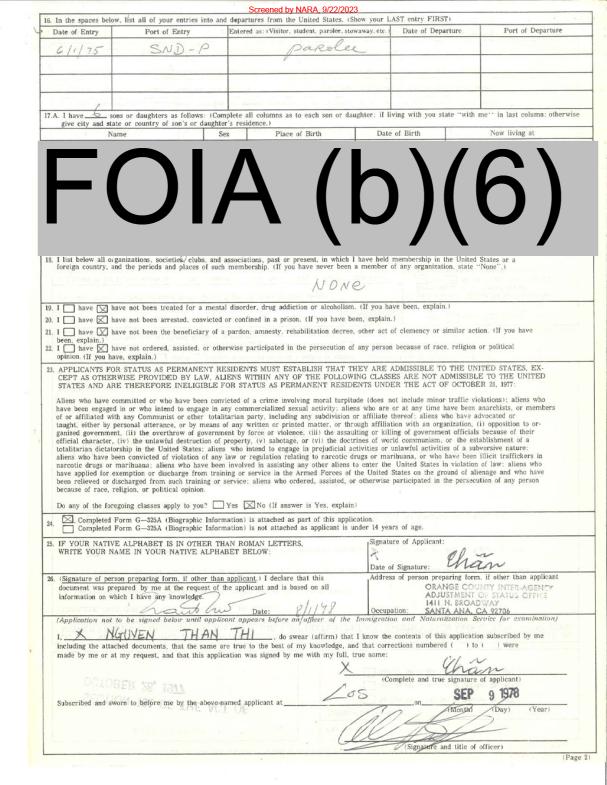 Screened by NARA, 9/22/2023
16. In the spaces below, list all of your entries into and departures from the United States. (Show your LAST entry FIRST)
Date of Entry Port of Entry Entered as: (Visitor, student, parolee, stowaway, etc.) Date of Departure Port of Departure
6/1/75 SND-P parolee
17.A. I have 6 sons or daughters as follows: (Complete all columns as to each son or daughter; if living with you state "with me" in last column; otherwise
give city and state or country of son's or daughter's residence.)
Name Sex Place of Birth Date of Birth Now living at
FOIA (b)(6)
18. I list below all organizations, societies, clubs, and associations, past or present, in which I have held membership in the United States or a
foreign country, and the periods and places of such membership. (If you have never been a member of any organization, state "None".)
NONE
19. I have have not been treated for a mental disorder, drug addiction or alcoholism. (If you have been, explain.)
20. I have have not been arrested, convicted or confined in a prison. (If you have been, explain.)
21. I have have not been the beneficiary of a pardon, amnesty, rehabilitation decree, other act of clemency or similar action. (If you have
been, explain.)
22. I have have not ordered, assisted, or otherwise participated in the persecution of any person because of race, religion or political
opinion. (If you have, explain.)
23. APPLICANTS FOR STATUS AS PERMANENT RESIDENTS MUST ESTABLISH THAT THEY ARE ADMISSIBLE TO THE UNITED STATES, EX-
CEPT AS OTHERWISE PROVIDED BY LAW, ALIENS WITHIN ANY OF THE FOLLOWING CLASSES ARE NOT ADMISSIBLE TO THE UNITED
STATES AND ARE THEREFORE INELIGIBLE FOR STATUS AS PERMANENT RESIDENTS UNDER THE ACT OF OCTOBER 28, 1977:
Aliens who have committed or who have been convicted of a crime involving moral turpitude (does not include minor traffic violations); aliens who
have been engaged in or who intend to engage in any commercialized sexual activity; aliens who are or at any time have been anarchists, or members
of or affiliated with any Communist or other totalitarian party, including any subdivision or affiliate thereof; aliens who have advocated or
taught, either by personal utterance, or by means of any written or printed matter, or through affiliation with an organization, (i) opposition to or-
ganised government, (ii) the overthrow of government by force or violence, (iii) the assaulting or killing of government officials because of their
official character, (iv) the unlawful destruction of property, (v) sabotage, or (vi) the doctrines of world communism, or the establishment of a
totalitarian dictatorship in the United States; aliens who intend to engage in prejudicial activities or unlawful activities of a subversive nature;
aliens who have been convicted of violation of any law or regulation relating to narcotic drugs or marihuana, or who have been illicit traffickers in
narcotic drugs or marihuana; aliens who have been involved in assisting any other aliens to enter the United States in violation of law; aliens who
have applied for exemption or discharge from training or service in the Armed Forces of the United States on the ground of alienage and who have
been relieved or discharged from such training or service; aliens who ordered, assisted, or otherwise participated in the persecution of any person
because of race, religion, or political opinion.
Do any of the foregoing classes apply to you? Yes No (If answer is Yes, explain)
24. Completed Form G—325A (Biographic Information) is attached as part of this application.
Completed Form G—325A (Biographic Information) is not attached as applicant is under 14 years of age.
25. IF YOUR NATIVE ALPHABET IS IN OTHER THAN ROMAN LETTERS,
WRITE YOUR NAME IN YOUR NATIVE ALPHABET BELOW:
Signature of Applicant:
X
Date of Signature:
26. (Signature of person preparing form, if other than applicant.) I declare that this
document was prepared by me at the request of the applicant and is based on all
information on which I have any knowledge.
Date: 8/1/78
Address of person preparing form, if other than applicant
ORANGE COUNTY INTER-AGENCY
ADJUSTMENT OF STATUS OFFICE
1411 N. BROADWAY
Occupation: SANTA ANA, CA 92706
(Application not to be signed below until applicant appears before an officer of the Immigration and Naturalization Service for examination)
I, X NGUYEN THAN THI, do swear (affirm) that I know the contents of this application subscribed by me
including the attached documents, that the same are true to the best of my knowledge, and that corrections numbered ( ) to ( ) were
made by me or at my request, and that this application was signed by me with my full, true name:
X
(Complete and true signature of applicant)
OCTOBER 28, 1977
Subscribed and sworn to before me by the above-named applicant at LOS on SEP 9 1978
(Month) (Day) (Year)
(Signature and title of officer)
(Page 2)